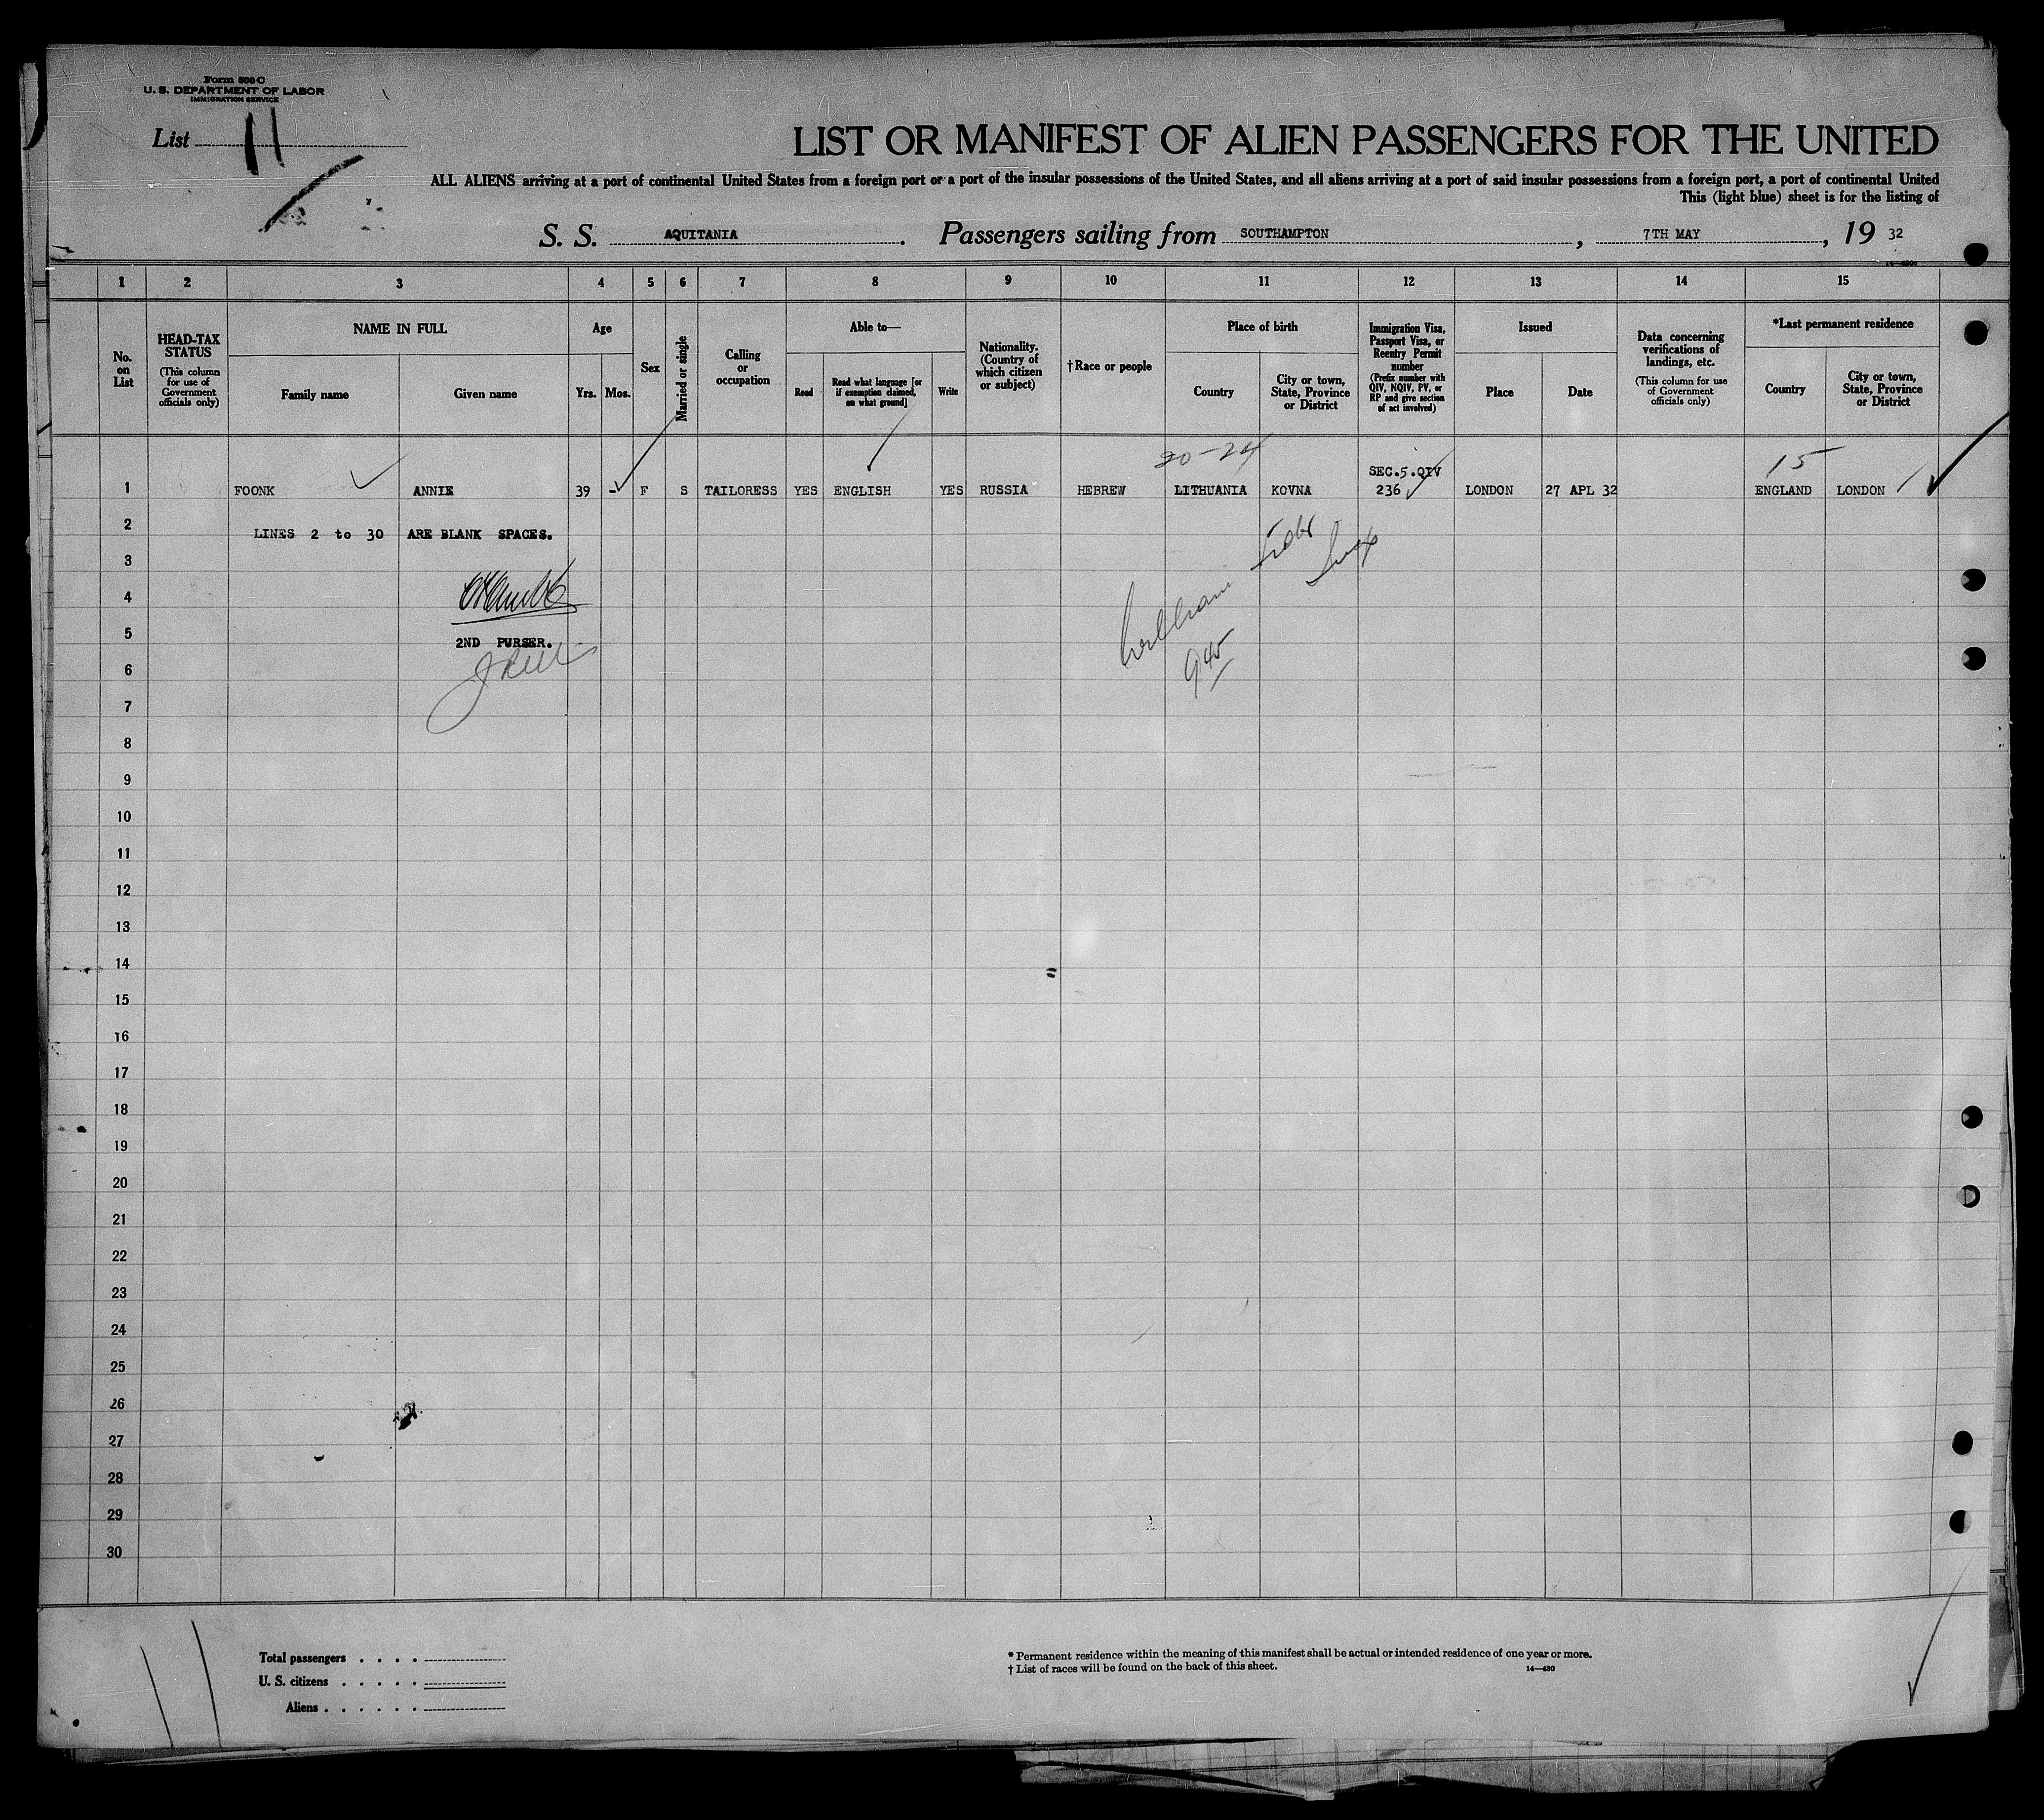 Form 500 C
U. S. DEPARTMENT OF LABOR
IMMIGRATION SERVICE
List 11
LIST OR MANIFEST OF ALIEN PASSENGERS FOR THE UNITED
ALL ALIENS arriving at a port of continental United States from a foreign port or a port of the insular possessions of the United States, and all aliens arriving at a port of said insular possessions from a foreign port, a port of continental United
This (light blue) sheet is for the listing of
S. S. AQUITANIA. Passengers sailing from SOUTHAMPTON, 7TH MAY, 19 32
1 2 3 4 5 6 7 8 9 10 11 12 13 14 15
No. on List
HEAD-TAX STATUS
(This column for use of Government officials only)
NAME IN FULL
Family name
Given name
Age
Yrs.
Mos.
Sex
Married or single
Calling or occupation
Able to—
Read
Read what language [or if exemption claimed, on what ground]
Write
Nationality. (Country of which citizen or subject)
†Race or people
Place of birth
Country
City or town, State, Province or District
Immigration Visa, Passport Visa, or Reentry Permit number
(Prefix number with QIV, NQIV, PV, or RP and give section of act involved)
Issued
Place
Date
Data concerning verifications of landings, etc.
(This column for use of Government officials only)
*Last permanent residence
Country
City or town, State, Province or District
20-24
SEC.5.QIV
15
1 FOONK ANNIE 39 - F S TAILORESS YES ENGLISH YES RUSSIA HEBREW LITHUANIA KOVNA 236 LONDON 27 APL 32 ENGLAND LONDON
2 LINES 2 to 30 ARE BLANK SPACES.
3
4
5 2ND PURSER.
6
945
7
8
9
10
11
12
13
14
15
16
17
18
19
20
21
22
23
24
25
26
27
28
29
30
Total passengers . . . .
U. S. citizens . . . . .
Aliens . . . . . .
* Permanent residence within the meaning of this manifest shall be actual or intended residence of one year or more.
† List of races will be found on the back of this sheet.
14—430